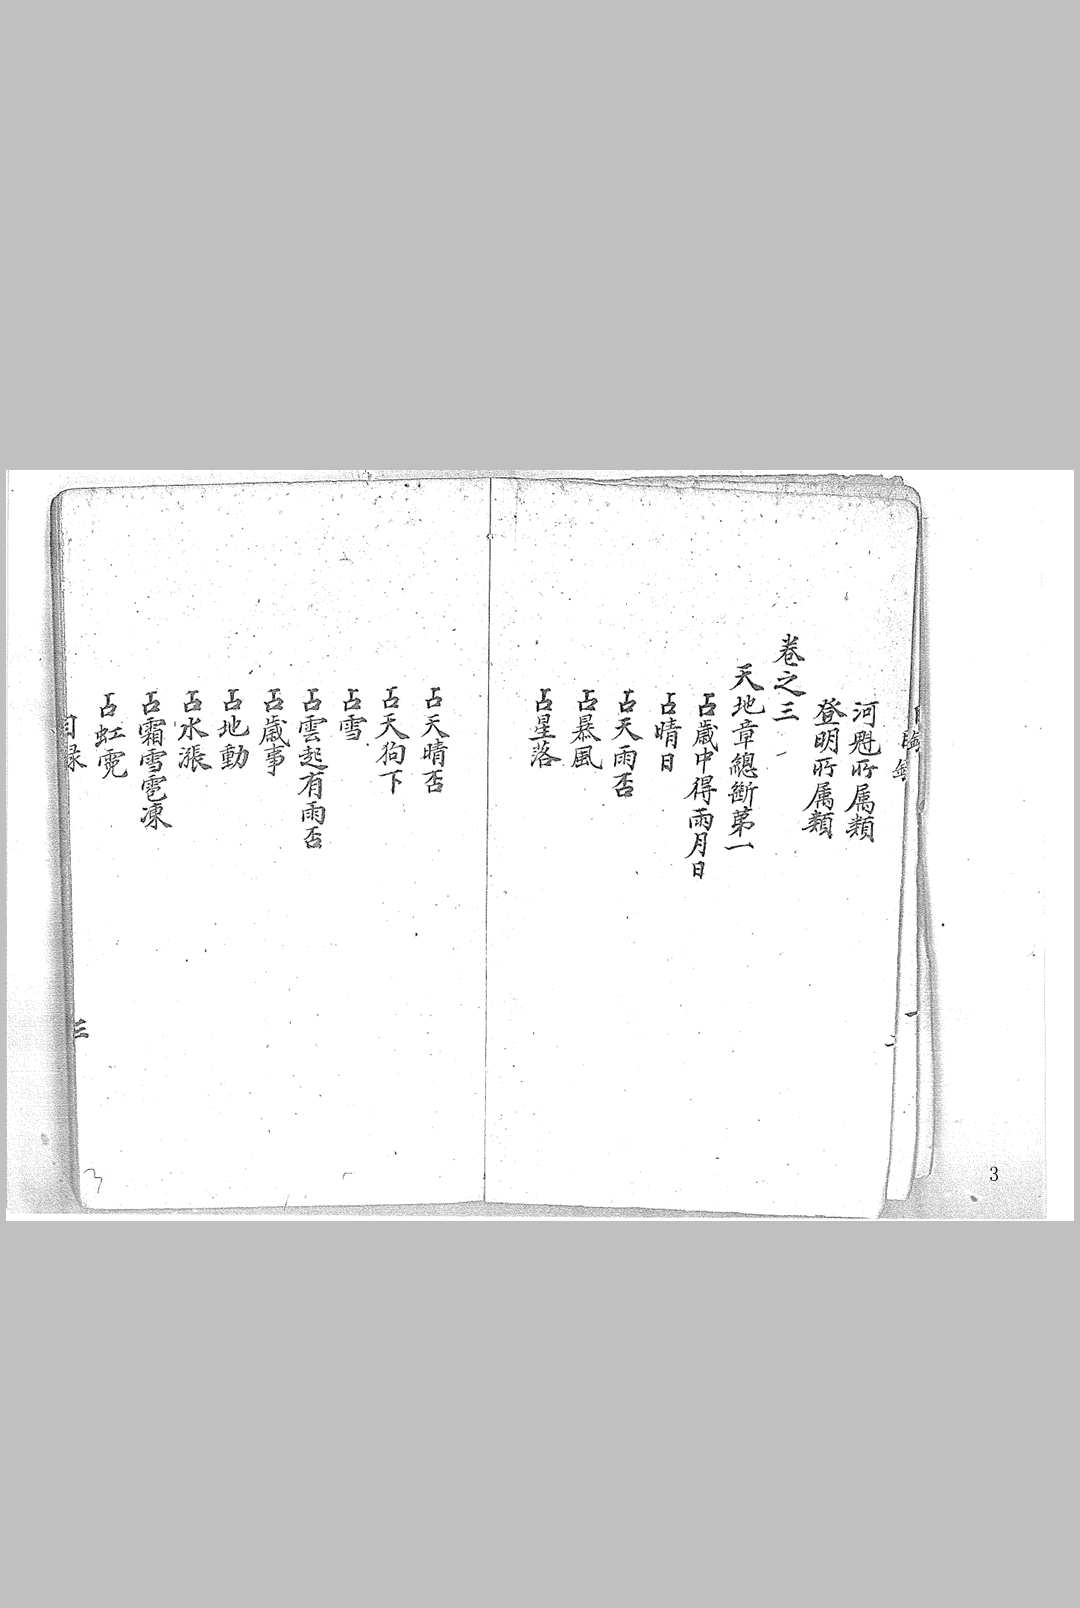 河魁所属類
登明所属類
卷之三
天地章總斷第一
占歲中得雨月日
占晴日
占天雨否
占暴風
占星落
占天晴否
占天狗下
占雪
占雲起有雨否
占歲事
占地動
占水漲
占霜雪雹凍
占虹霓
目録
三
3
3